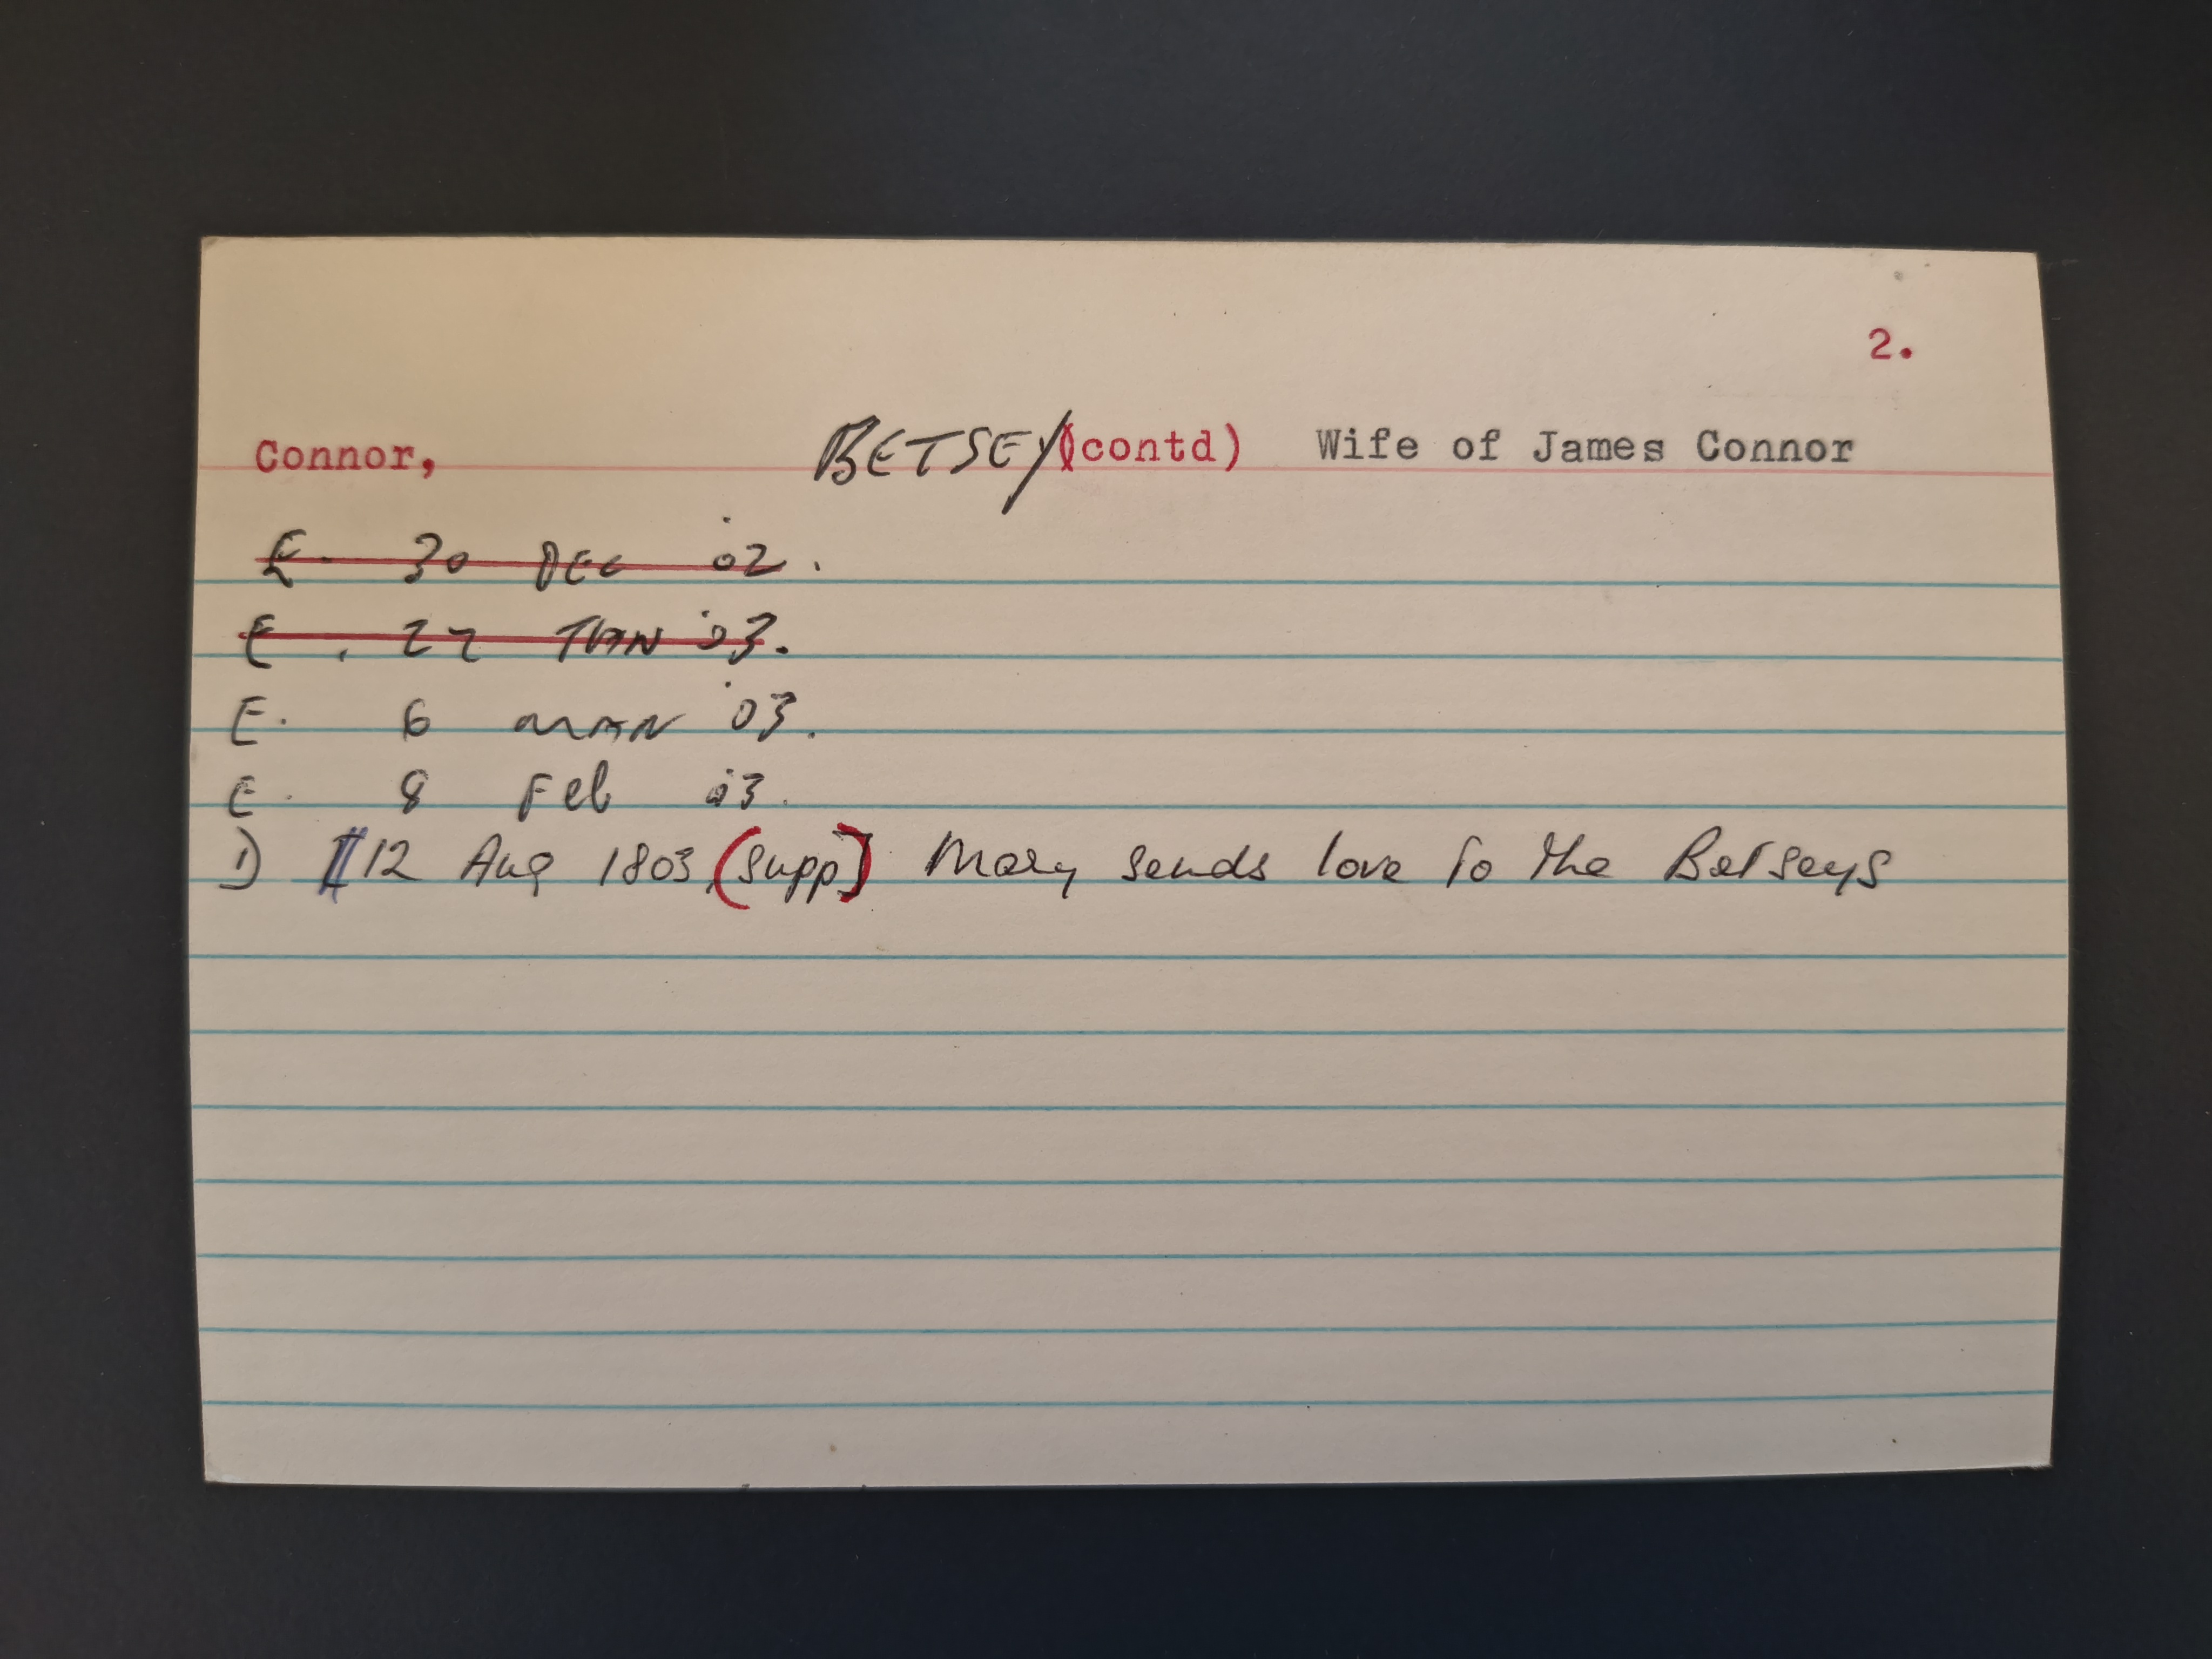 2.
Connor, BETSEY (contd) Wife of James Connor
E. 30 DEC '02.
E. 27 JAN '03.
E. 6 MAR '03.
E. 8 Feb '03.
D 12 Aug 1803 (supp) Mary sends love to the Betseys